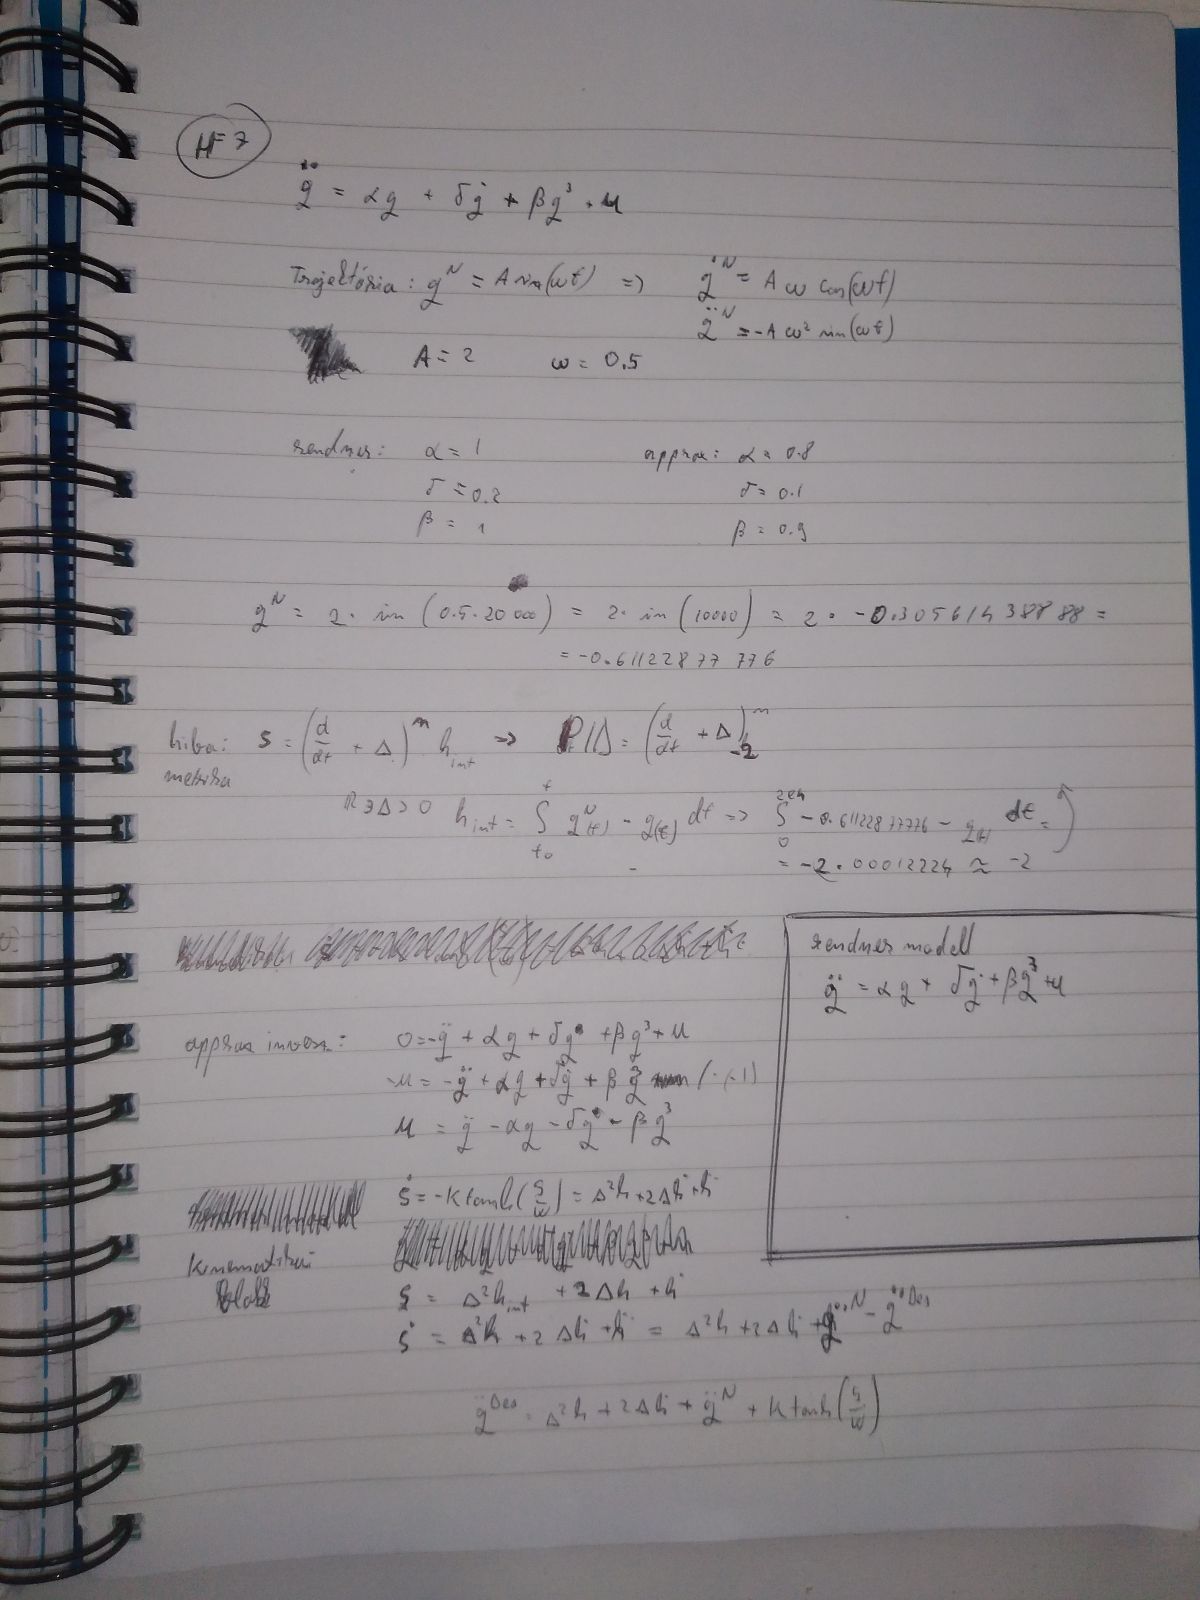 HF 7
q̈ = αq + δq̇ + βq³ + u
Trajektória: q^N = A sin(ωt) => q̇^N = A ω cos(ωt)
q̈^N = -A ω² sin(ωt)
A = 2 ω = 0.5
rendszer: α = 1 approx: α = 0.8
δ = 0.2 δ = 0.1
β = 1 β = 0.9
q^N = 2 · sin (0.5 · 20 000) = 2 · sin (10000) = 2 · -0.30561438888 =
= -0.61122877776
hiba: S = (d/dt + Δ)^m h_int => PID = (d/dt + Δ)^m -2
metrika
ℝ ∋ Δ > 0 h_int = ∫_{t₀}^{t} q^N(t) - q(t) dt => ∫_0 -0.61122877776 - q(t) dt =
= -2.00012224 ≈ -2
rendszer modell
q̈ = αq + δq̇ + βq³ + u
approx inverz: 0 = -q̈ + αq + δq̇ + βq³ + u
-u = -q̈ + αq + δq̇ + βq³ / · (-1)
u = q̈ - αq - δq̇ - βq³
ṡ = -K tanh(s/w) = Δ²h + 2Δḣ + ḧ
Kinematikai
blokk
S = Δ²h_int + 2Δh + ḣ
ṡ = Δ²h + 2Δḣ + ḧ = Δ²h + 2Δḣ + q̈^N - q̈^Des
q̈^Des = Δ²h + 2Δḣ + q̈^N + K tanh(s/w)